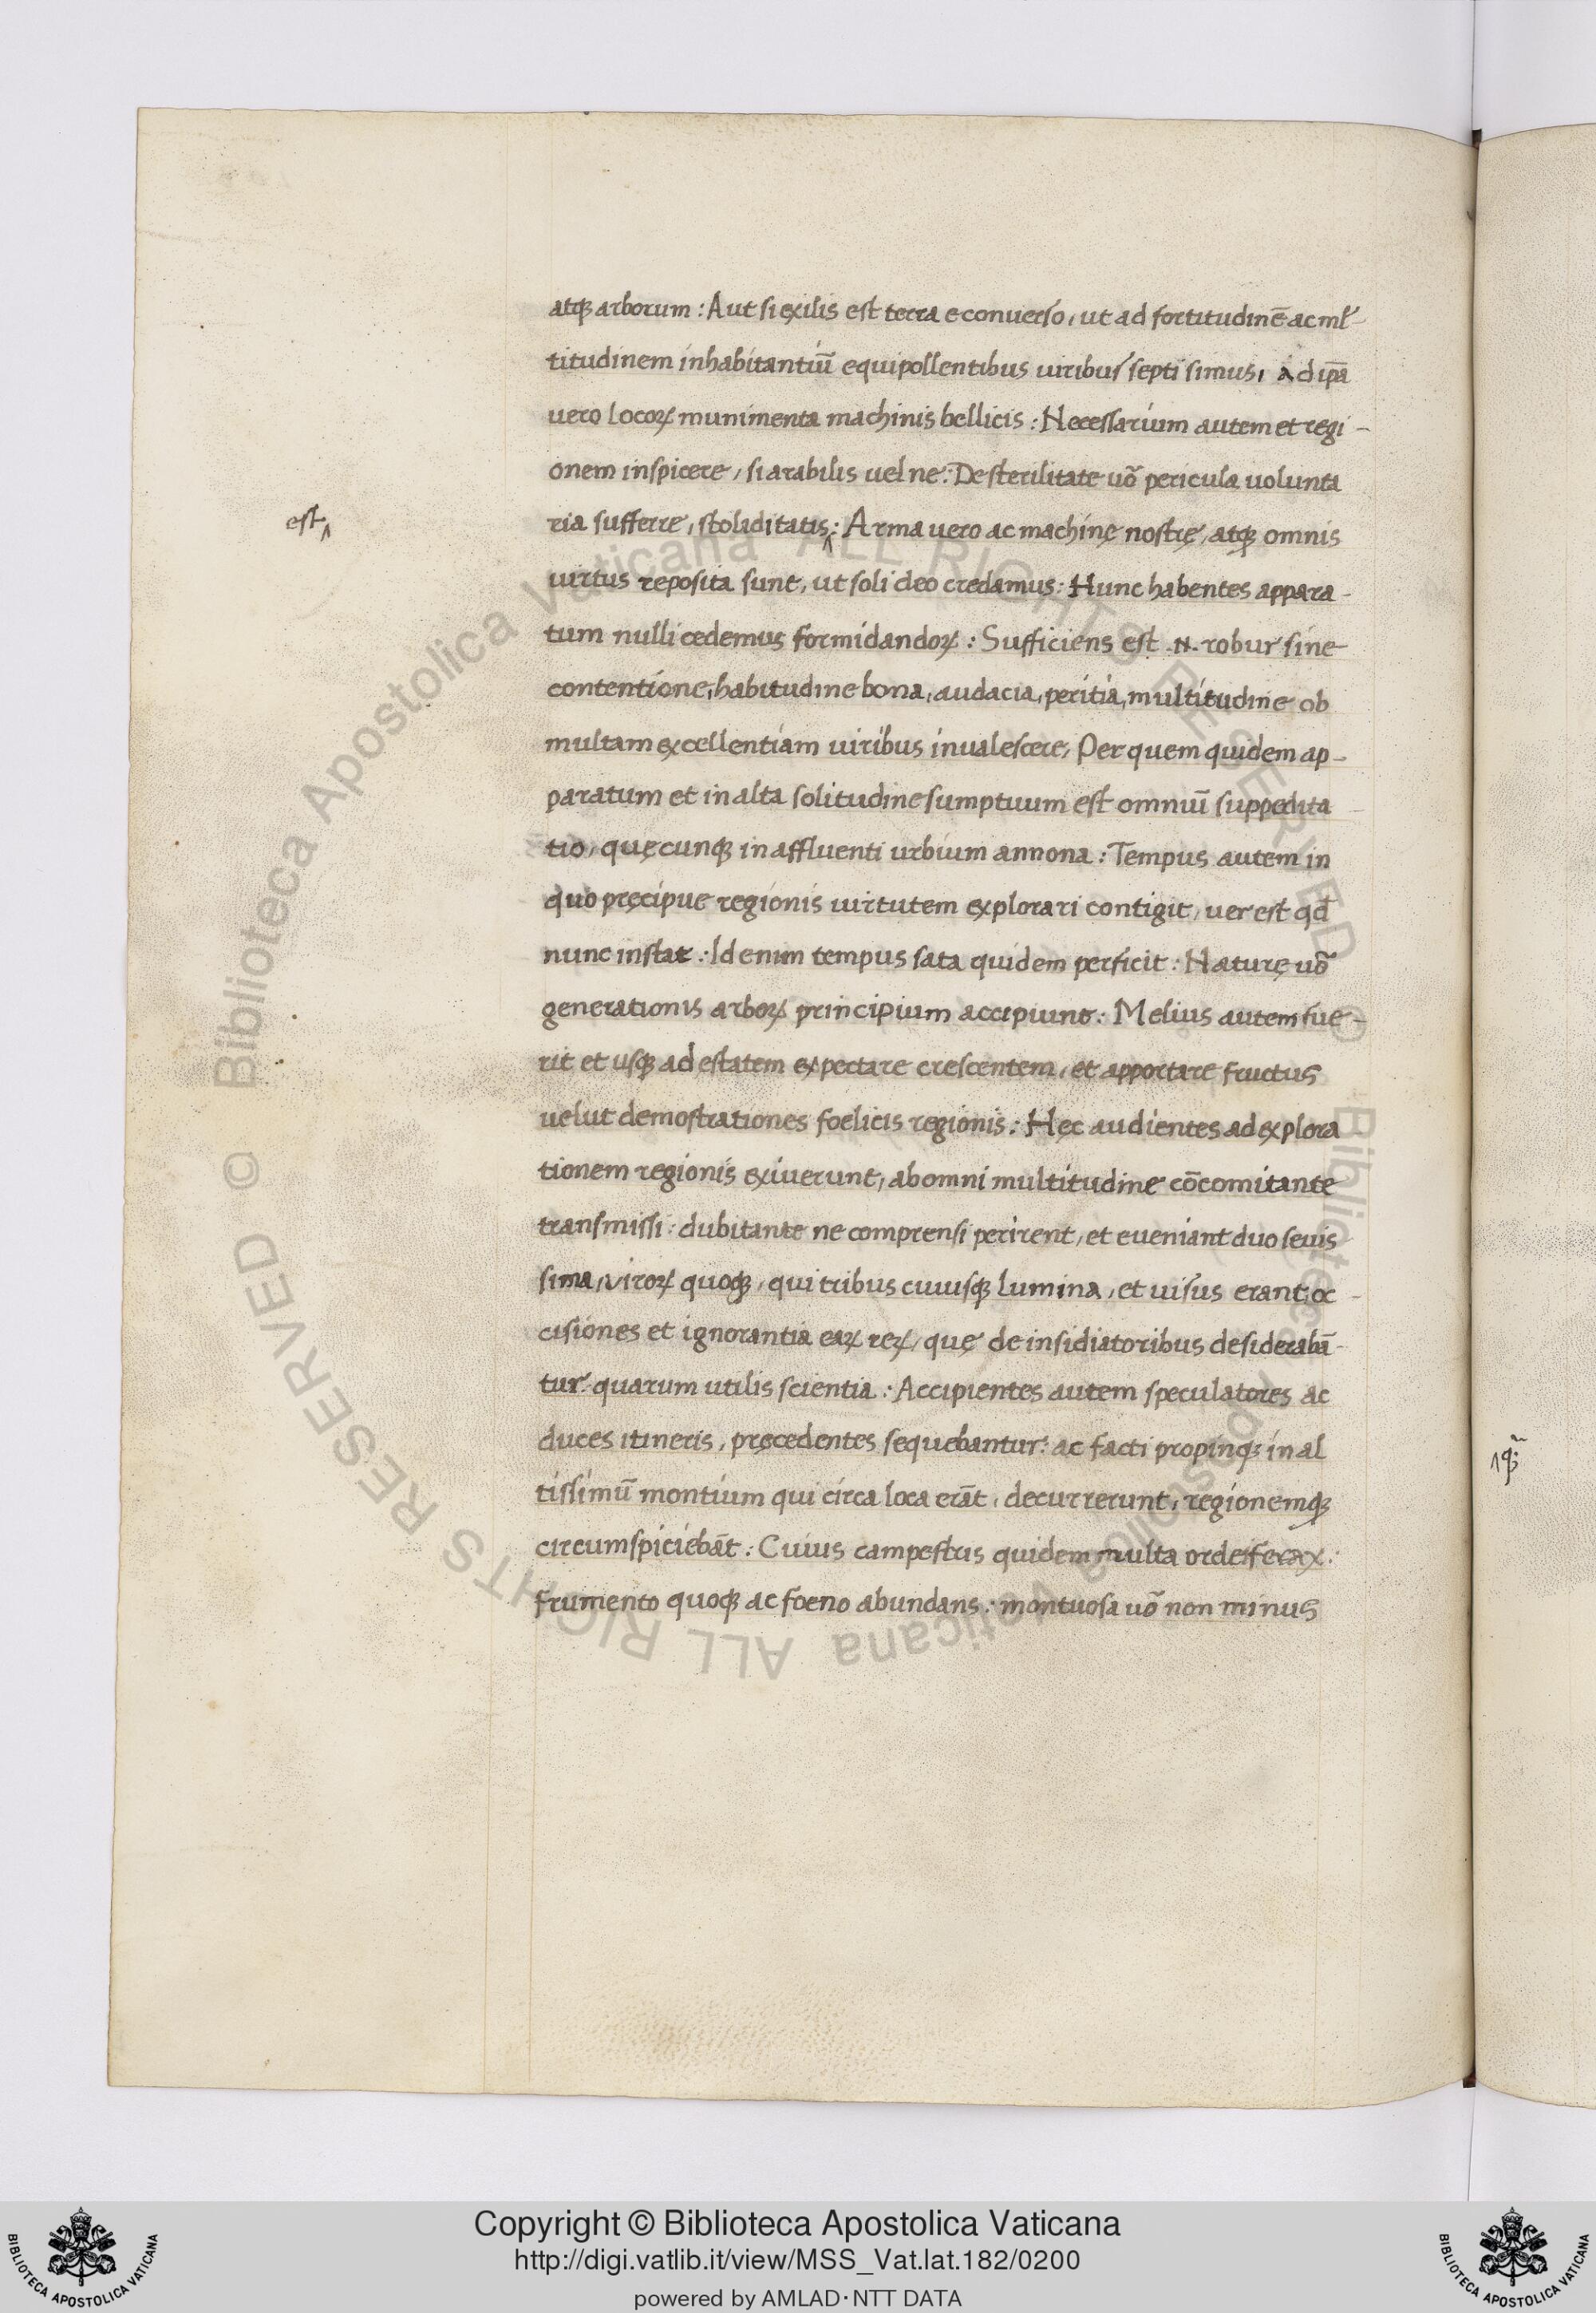 atqꝫ arborum : Aut si exilis est terra e conuerso, ut ad fortitudinē ac ml̄-
titudinem inhabitantiū equipollentibus uiribus septi simus, ad ip̄a
uero locoꝝ munimenta machinis bellicis : Necessarium autem et regi-
onem inspicere, si arabilis uel ne : De sterilitate uō pericula uolunta
est‸
ria sufferre, stoliditatis‸ : Arma uero ac machinę nostrę, atqꝫ omnis
uirtus reposita sunt, ut soli deo credamus : Hunc habentes appara-
tum nulli cedemus formidandoꝝ : Sufficiens est .N. robur sine
contentione, habitudine bona, audacia, peritia, multitudine ob
multam excellentiam uiribus inualescere, Per quem quidem ap-
paratum et in alta solitudine sumptuum est omniū suppedita
tio, quęcunqꝫ in affluenti urbium annona : Tempus autem in
quo pręcipue regionis uirtutem explorari contigit, uer est qd̄
nunc instat : Id enim tempus sata quidem perficit : Naturę uō
generationis arboꝝ principium accipiunt : Melius autem fue-
rit et usqꝫ ad estatem expectare crescentem, et apportare fructus
uelut demostrationes foelicis regionis : Hęc audientes ad explora
tionem regionis exiuerunt, ab omni multitudine cōcomitante
transmissi : dubitante ne comprensi perirent, et eueniant duo seuis
sima, uiroꝝ quoqꝫ, qui tribus cuiusqꝫ lumina, et uisus erant oc-
cisiones et ignorantia eaꝝ reꝝ, quę de insidiatoribus desiderabā-
tur : quarum utilis scientia : Accipientes autem speculatores ac
duces itineris, pręcedentes sequebantur : ac facti propinqꝫ in al
tissimū montium qui circa loca erāt, decurrerunt, regionemqꝫ
circumspiciebāt : Cuius campestris quidem multa ordei ferax :
frumento quoqꝫ ac foeno abundans : montuosa uō non minus
Copyright © Biblioteca Apostolica Vaticana
http://digi.vatlib.it/view/MSS_Vat.lat.182/0200
powered by AMLAD·NTT DATA
BIBLIOTECA APOSTOLICA VATICANA
BIBLIOTECA APOSTOLICA VATICANA
Biblioteca Apostolica Vaticana ALL RIGHTS RESERVED ©
Biblioteca Apostolica Vaticana ALL RIGHTS RESERVED ©